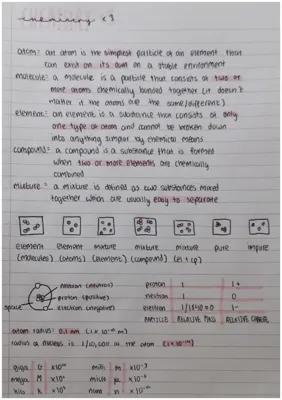 chemistry <3
atom: an atom is the simplest particle of an element that
can exist on its own on a stable environment
molecule: a molecule is a particle that consists of two or
more atoms chemically bonded together (it doesn't
matter if the atoms are the same/different)
element: an element is a substance that consists of only
one type of atom and cannot be broken down
into anything simpler by chemical means
compound: a compound is a substance that is formed
when two or more elements are chemically
combined
mixture: a mixture is defined as two substances mixed
together which are usually easy to separate
element element mixture mixture mixture pure impure
(molecules) (atoms) (element) (compound) (el + cp)
neutron (neutral)
proton (positive)
electron (negative)
space
proton 1 1+
neutron 1 0
electron 1/1840 = 0 1-
PARTICLE RELATIVE MASS RELATIVE CHARGE
atom radius: 0.1 nm (1 x 10⁻¹⁰ m)
radius of nucleus is 1/10,000 of the atom (1 x 10⁻¹⁴)
giga G x10⁹ milli m x10⁻³
mega M x10⁶ micro μ x10⁻⁶
kilo K x10³ nano n x10⁻⁹